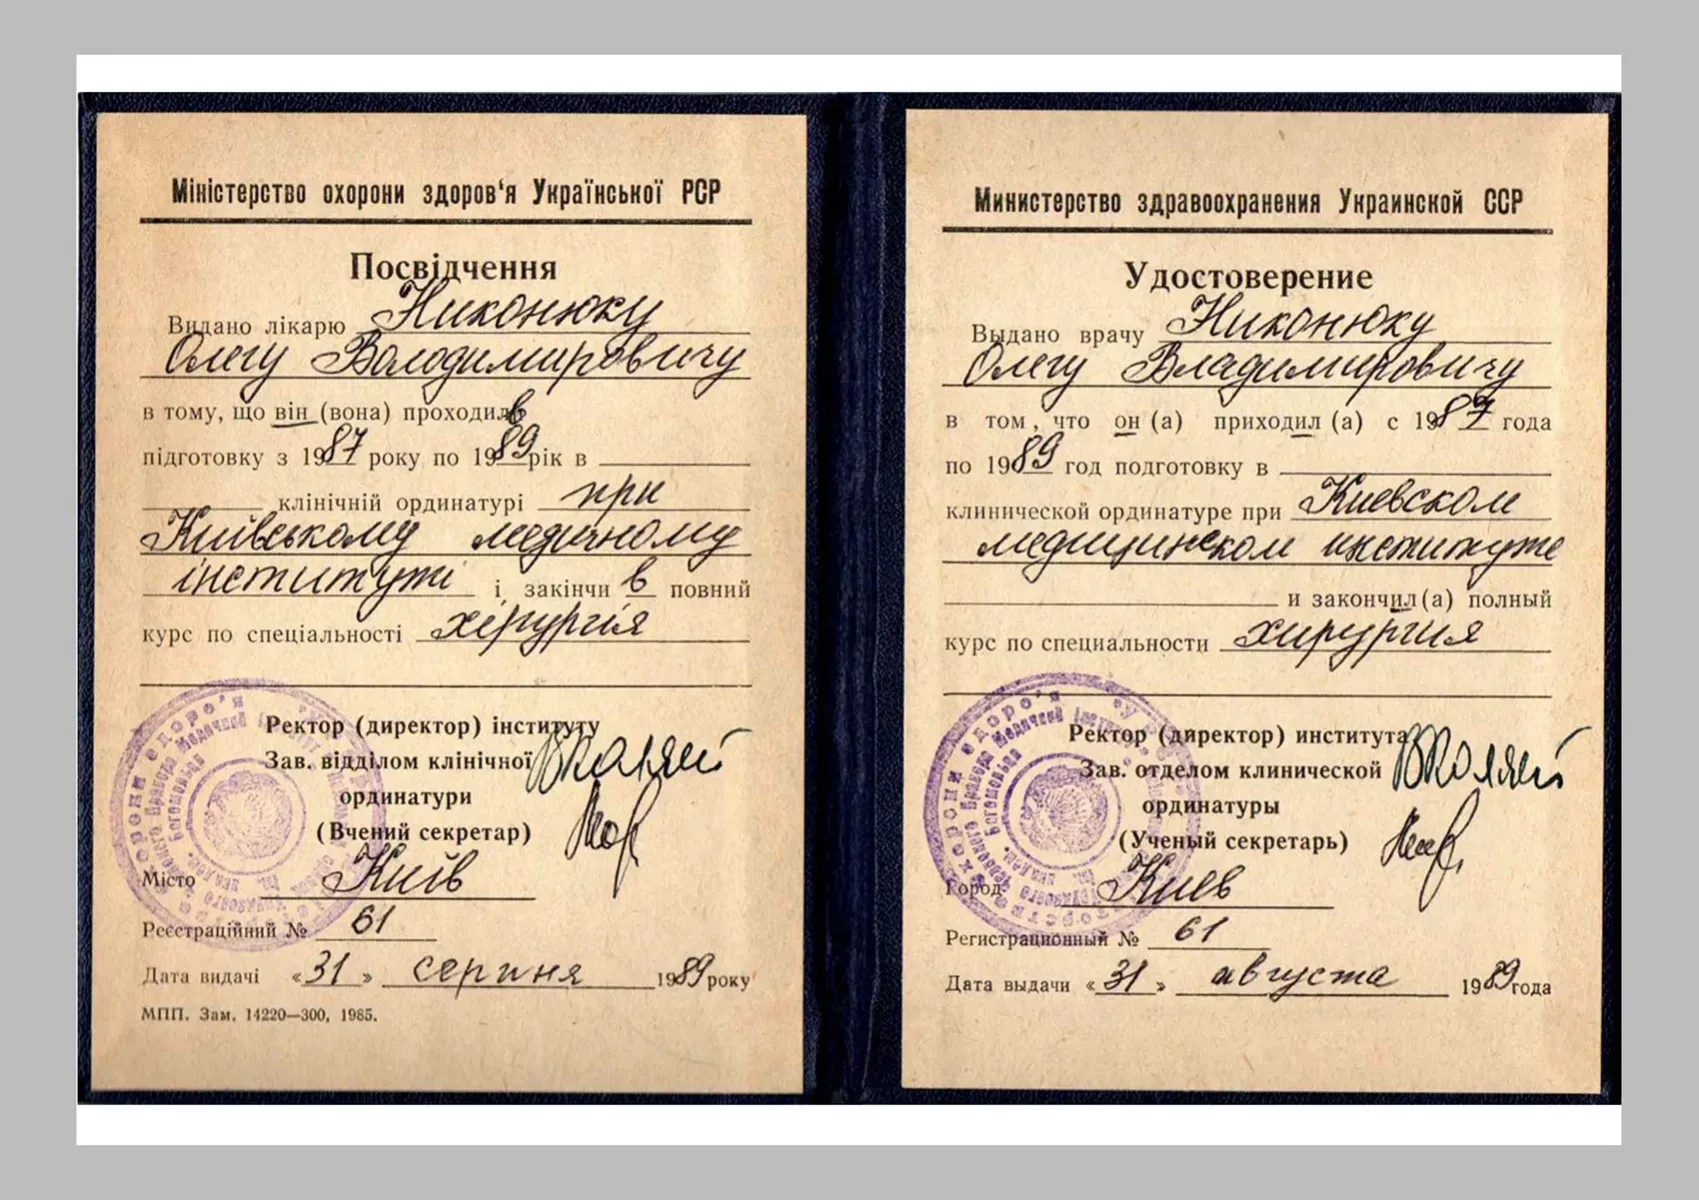 Міністерство охорони здоров'я Української РСР
Посвідчення
Видано лікарю Никонюку
Олегу Володимировичу
в тому, що він (вона) проходив
підготовку з 1987 року по 1989 рік в
клінічній ординатурі при
Київському медичному
інституті і закінчив повний
курс по спеціальності хірургія
Ректор (директор) інституту
Зав. відділом клінічної
ординатури
(Вчений секретар)
Місто Київ
Реєстраційний № 61
Дата видачі «31» серпня 1989 року
МПП. Зам. 14220—300, 1985.
Министерство здравоохранения Украинской ССР
Удостоверение
Выдано врачу Никонюку
Олегу Владимировичу
в том, что он (а) приходил (а) с 1987 года
по 1989 год подготовку в
клинической ординатуре при Киевском
медицинском институте
и закончил (а) полный
курс по специальности хирургия
Ректор (директор) института
Зав. отделом клинической
ординатуры
(Ученый секретарь)
Город Киев
Регистрационный № 61
Дата выдачи «31» августа 1989 года